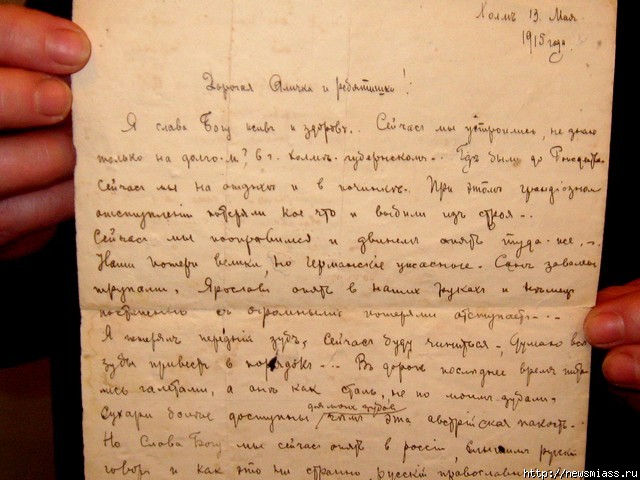 Холмъ 13. Мая
1915 года.
Дорогая Аличка и ребятишки!
Я слава Богу живъ и здоровъ.. Сейчасъ мы устроились, не знаю
только на долго-ли? в г. Холмъ губернскомъ.. Гдѣ были до
Сейчасъ мы на отдыхѣ и в починкѣ. При этомъ грандіозном
отступленіи потеряли кое что и выбыли изъ строя..
Сейчасъ мы поправимся и двинемъ опять туда-же,..
Наши потери велики, но Германскіе ужаснѣе. Санъ завалены
трупами, Ярославъ опять в нашихъ рукахъ и нѣмецъ
постепенно съ огромными потерями отступаетъ...
Я потерялъ передній зубъ, сейчасъ буду чиниться. Думаю всѣ
зубы привесть в порядокъ... Въ дороге последнее время пита
лись галетами, а онѣ как сталь, не по моимъ зубамъ,
Сухари более доступны для моих зубов чѣмъ эта австрійская пакость..
Но Слава Богу мы сейчас опять в россіи, слышимъ русскій
говоръ и какъ это ни странно, русскій
http://newsmiass.ru